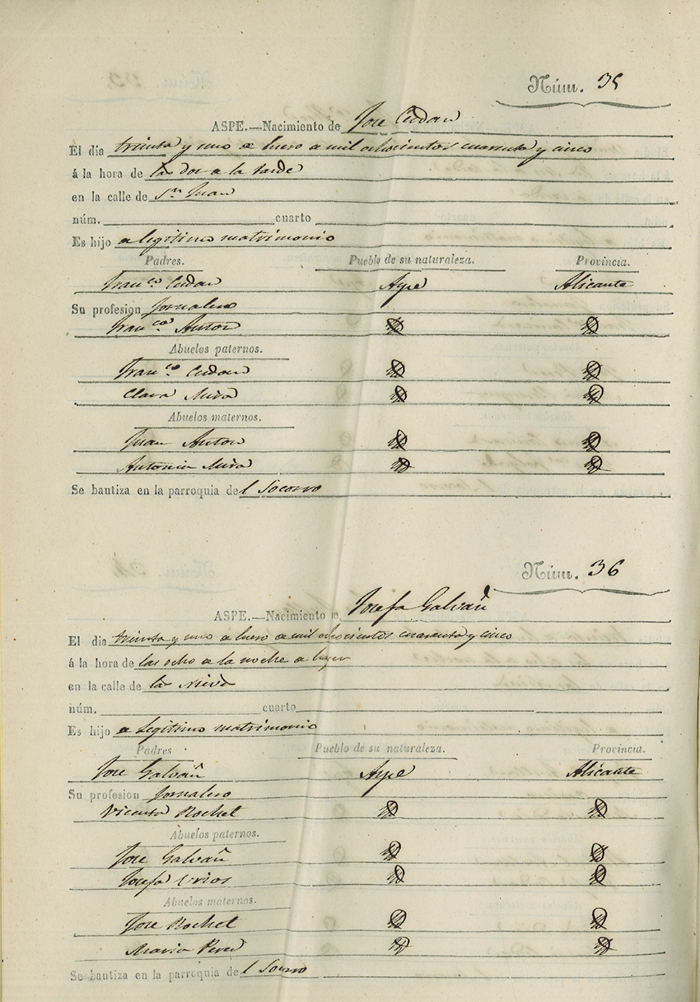 Núm. 35
ASPE.—Nacimiento de Jose
El dia treinta y uno de Enero de mil ochocientos cuarenta y cinco
á la hora de las dos de la tarde
en la calle de Sn. Juan
núm. cuarto
Es hijo de legitimo matrimonio
Padres. Pueblo de su naturaleza. Provincia.
Franco. Aspe Alicante
Su profesion Jornalero
Franca. Anton
Abuelos paternos.
Franco.
Clara Mira
Abuelos maternos.
Juan Anton
Antonia Mira
Se bautiza en la parroquia del Socorro
Núm. 36
ASPE.—Nacimiento de Josefa Galvañ
El dia treinta y uno de Enero de mil ochocientos cuarenta y cinco
á la hora de las ocho de la noche de
en la calle de la Nueva
núm. cuarto
Es hijo de legitimo matrimonio
Padres Pueblo de su naturaleza. Provincia.
Jose Galvañ Aspe Alicante
Su profesion Jornalero
Vicenta Rochel
Abuelos paternos.
Jose Galvañ
Josefa Urios
Abuelos maternos.
Jose Rochel
Maria
Se bautiza en la parroquia del Socorro